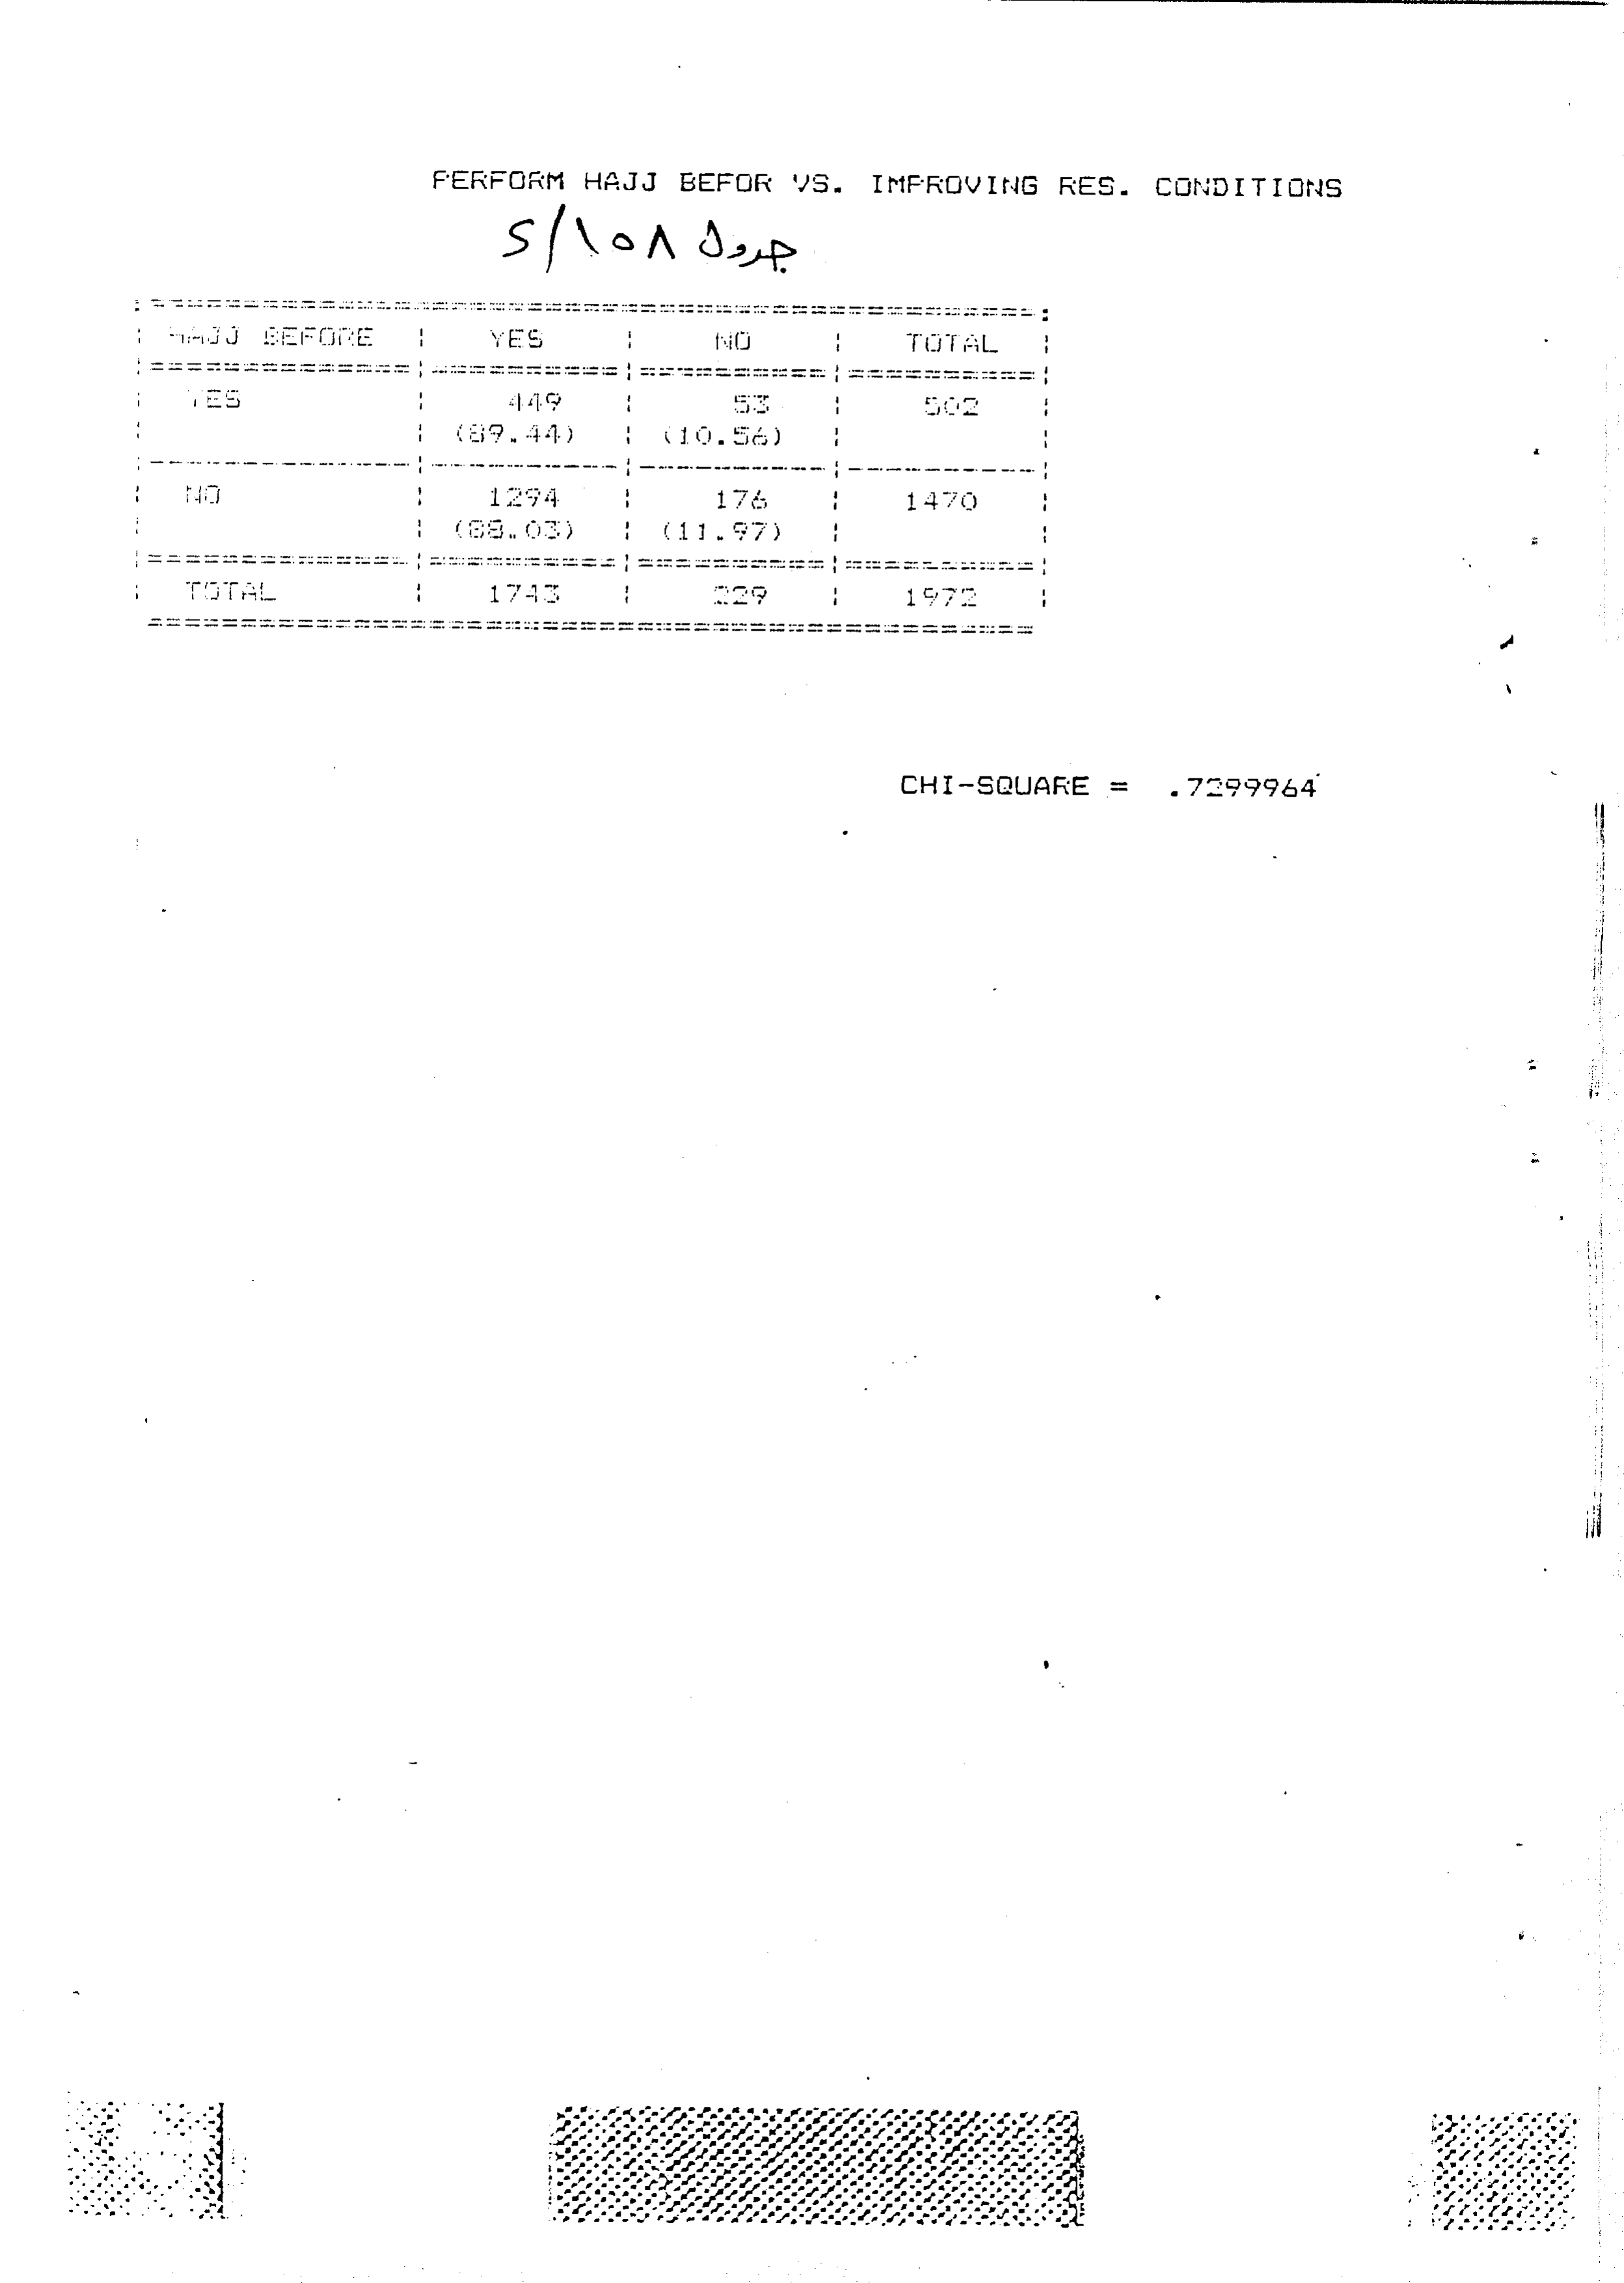 PERFORM HAJJ BEFOR VS. IMPROVING RES. CONDITIONS
جدول ١٥٨/S
HAJJ BEFORE | YES | NO | TOTAL
YES | 449 | 53 | 502
(89.44) | (10.56)
NO | 1294 | 176 | 1470
(88.03) | (11.97)
TOTAL | 1743 | 229 | 1972
CHI-SQUARE = .7299964